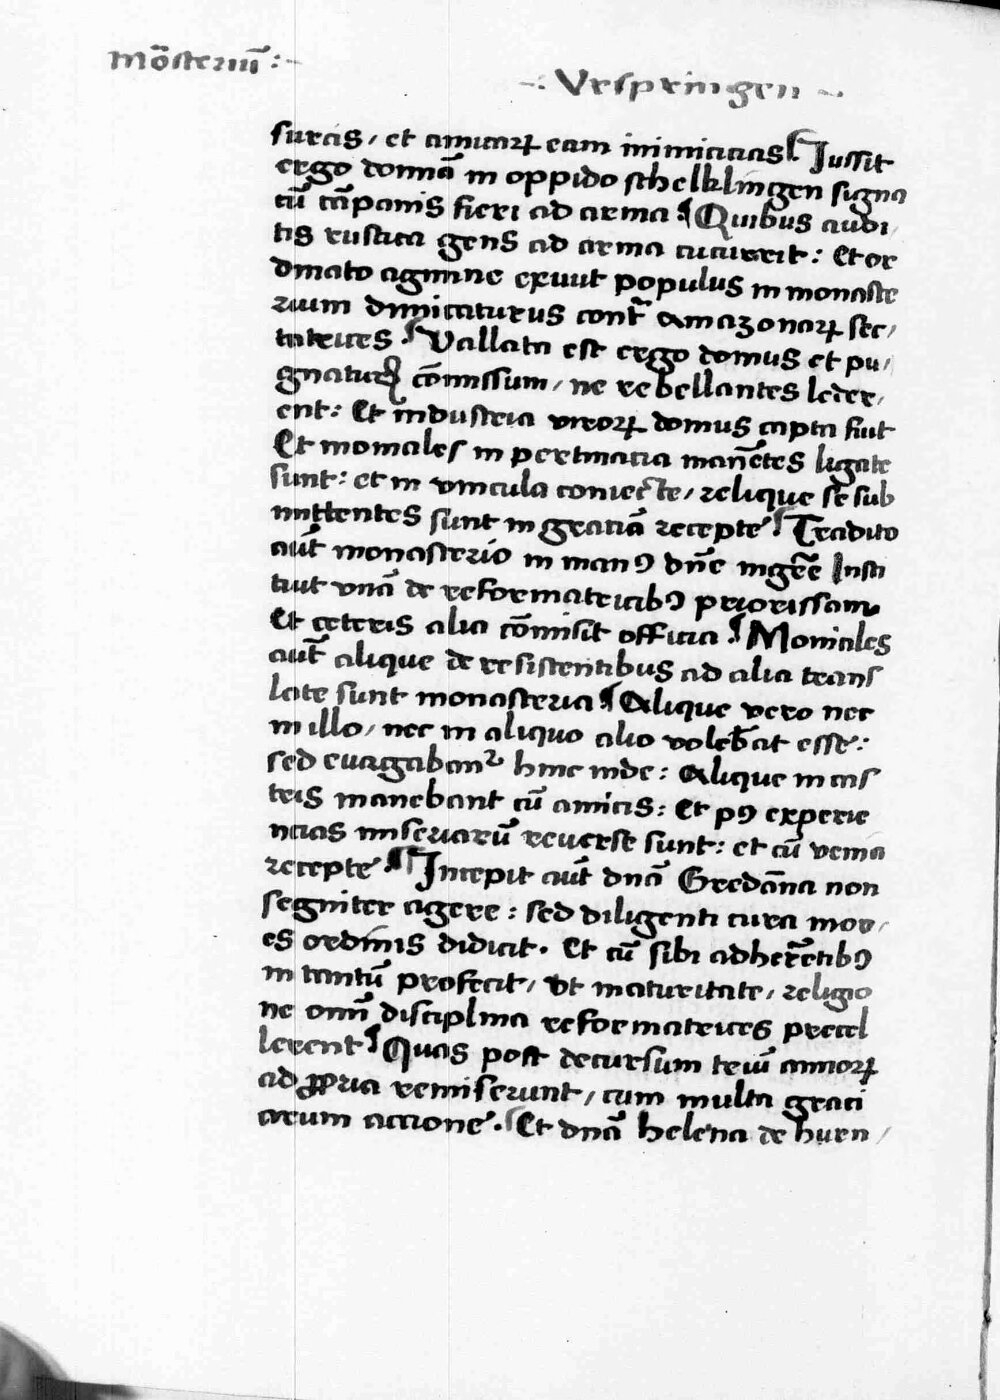 Mōsteriū :-
-: Vrspringen :-
suras, et amicoꝝ eam inimicicias ¶ Jussit
ergo domnā in oppido schelklingen signa
cū cāpanis fieri ad arma ¶ Quibus audi,
tis rustica gens ad arma cucurrit: Et or
dinato agmine exiuit populus in monaste
rium dimicaturus cont͛ amazonaꝝ sec,
tatrices ¶ Vallata est ergo domus et pu,
gnaturꝭ cōmissum, ne rebellantes leder,
ent: Et industria viroꝝ domus capta fuit
Et moniales in pertinacia manētes ligate
sunt: et in vincula coniecte, relique se sub
mittentes sunt in graciā recepte ¶ Tradito
aūt monasterio in manꝰ dn̄e ingr̄e Insti
tuit vnā de reformatricibꝰ priorissam
Et ceteris alia cōmisit officia ¶ Moniales
aūt alique de resistentibus ad alia trans
late sunt monasteria ¶ Alique vero nec
in illo, nec in aliquo alio voleb̄at esse:
sed euagabant᷑ hinc inde: Alique in cas
tris manebant cū amicis: Et pꝰ experie
ncias miseriarū reuerse sunt: et cū venia
recepte ¶ Jncepit aūt dn̄a Gredāna non
segniter agere: sed diligenti cura mor,
es ordinis didicit. Et cū sibi adherētibꝰ
in tantū profecit, vt maturitate, religio
ne omī disciplina reformatrices precel
lerent ¶ Quas post decursum triū annoꝝ
ad ꝓpria remiserunt, cum multa graci
arum accione. ¶ Et dn̄ā helena de hurn,